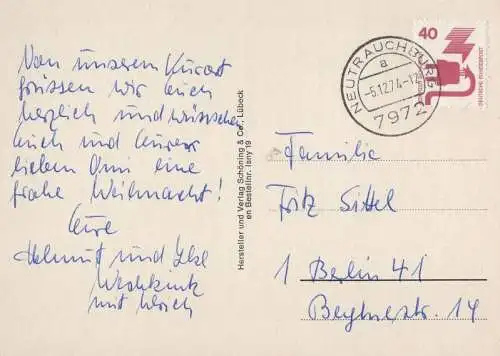 Von unserem Kurort
grüssen wir euch
herzlich und wünschen
Euch und Eurer
lieben Omi eine
frohe Weihnacht!
Eure
Helmut und Ilse
mit
Hersteller und Verlag Schöning & Co., Lübeck
en Bestellnr. Isny 19
NEUTRAUCHBURG
a
-5.12.74-12
7972
40
DEUTSCHE BUNDESPOST
Familie
Fritz Sittel
1 Berlin 41
14